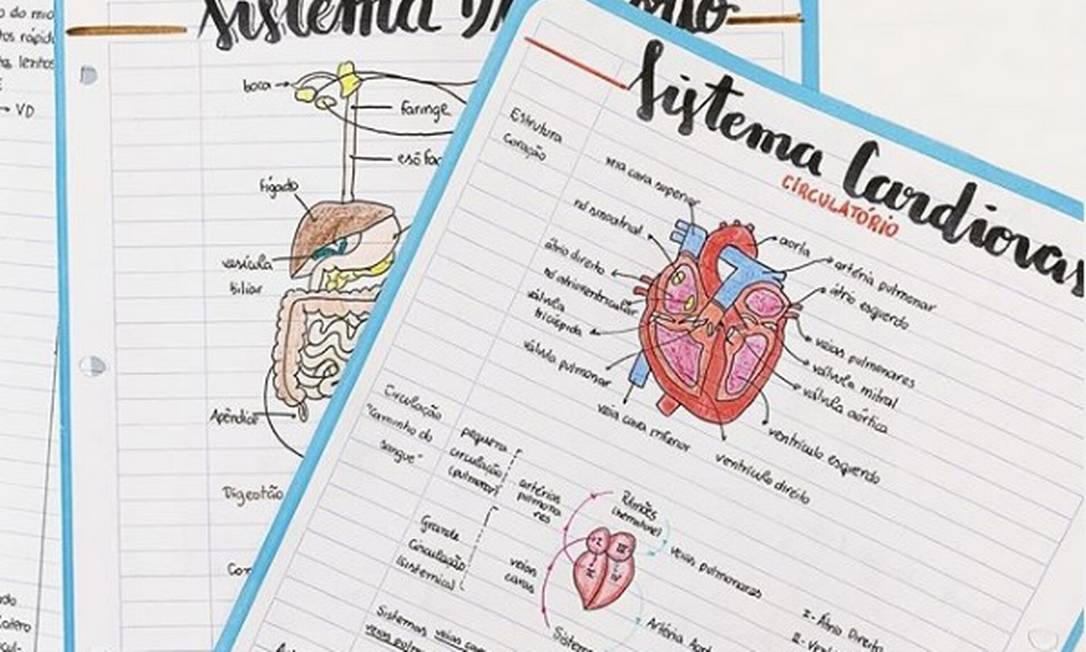 o do mio
tos rápid
lentos
→ VD
Sistema
boca
faringe
esôfag
fígado
vesícula
biliar
Apêndice
Digestão
Sistema Cardiovas
CIRCULATÓRIO
Estrutura
coração
veia cava superior
nó sinoatrial
átrio direito
nó atrioventricular
válvula
tricúspida
válvula pulmonar
veia cava inferior
ventrículo direito
ventrículo esquerdo
válvula aórtica
válvula mitral
veias pulmonares
átrio esquerdo
artéria pulmonar
aorta
Circulação
"Caminho do
sangue"
pequena
circulação
(pulmonar)
artérias
pulmona
res
Grande
Circulação
(sistêmica)
veias
cavas
Pulmões
(hematose)
veias pulmonares
I
III
II
IV
Artéria Aort
Sistem
I- Átrio Direito
II- Ven
Sistemas veias cav
veias pulm